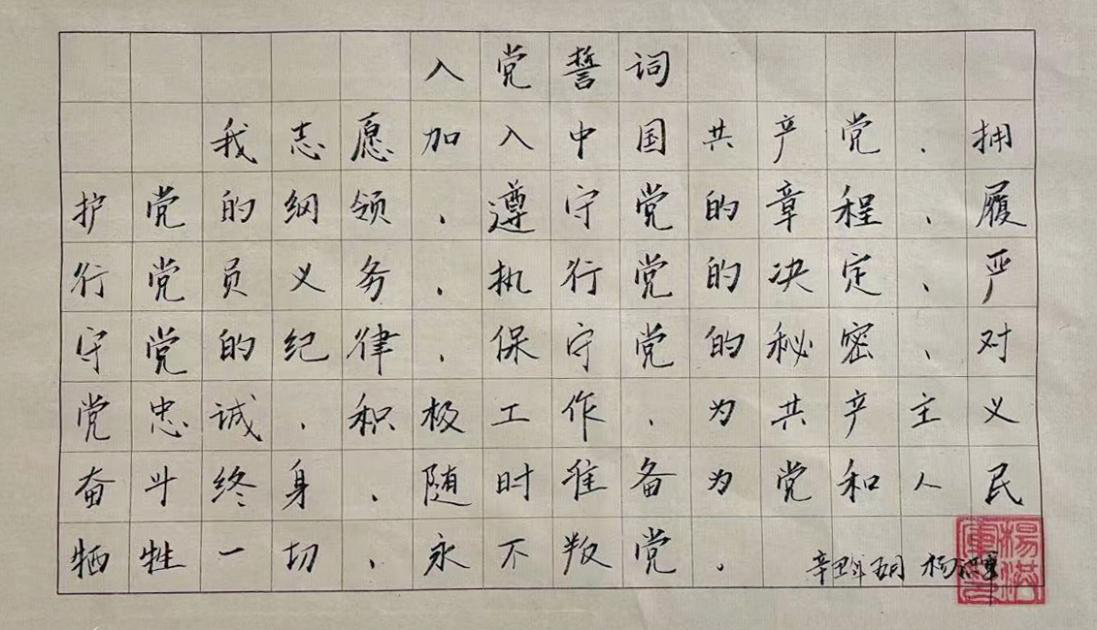 入党誓词
我志愿加入中国共产党、拥
护党的纲领、遵守党的章程、履
行党员义务、执行党的决定、严
守党的纪律、保守党的秘密、对
党忠诚、积极工作、为共产主义
奋斗终身、随时准备为党和人民
牺牲一切、永不叛党、
辛丑年 杨洪军
杨洪军印